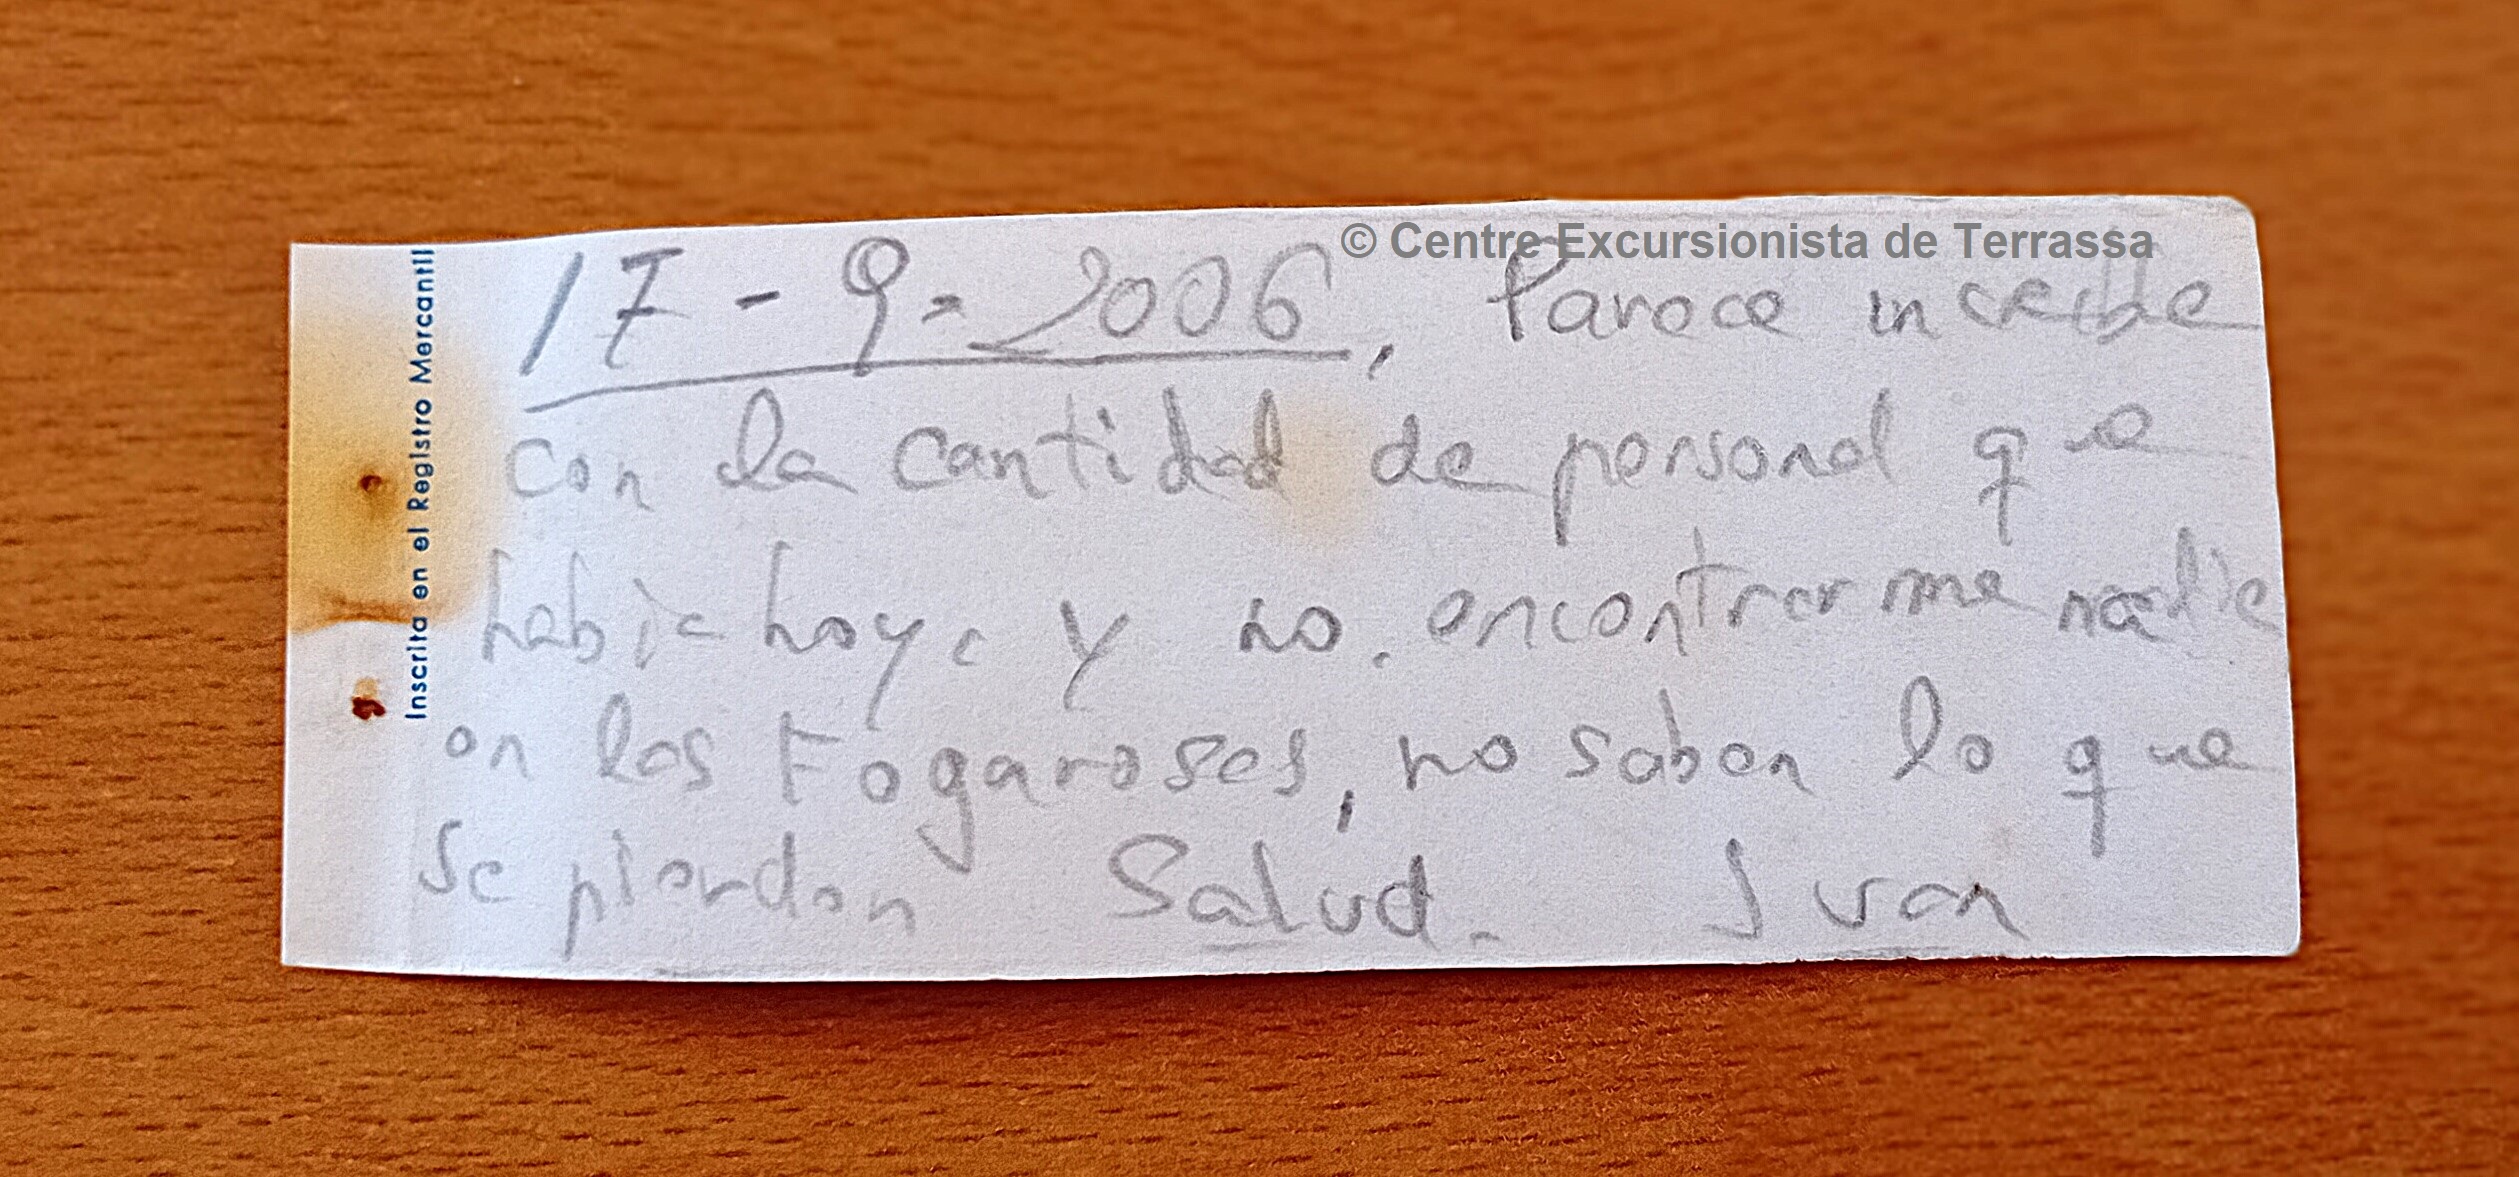 © Centre Excursionista de Terrassa
Inscrita en el Registro Mercantil
17-9-2006, Parece increible
con la cantidad de personal que
habia hoy. y no. encontrarme nadie
en las Fogaroses, no saben lo que
se pierden Salud. Juan